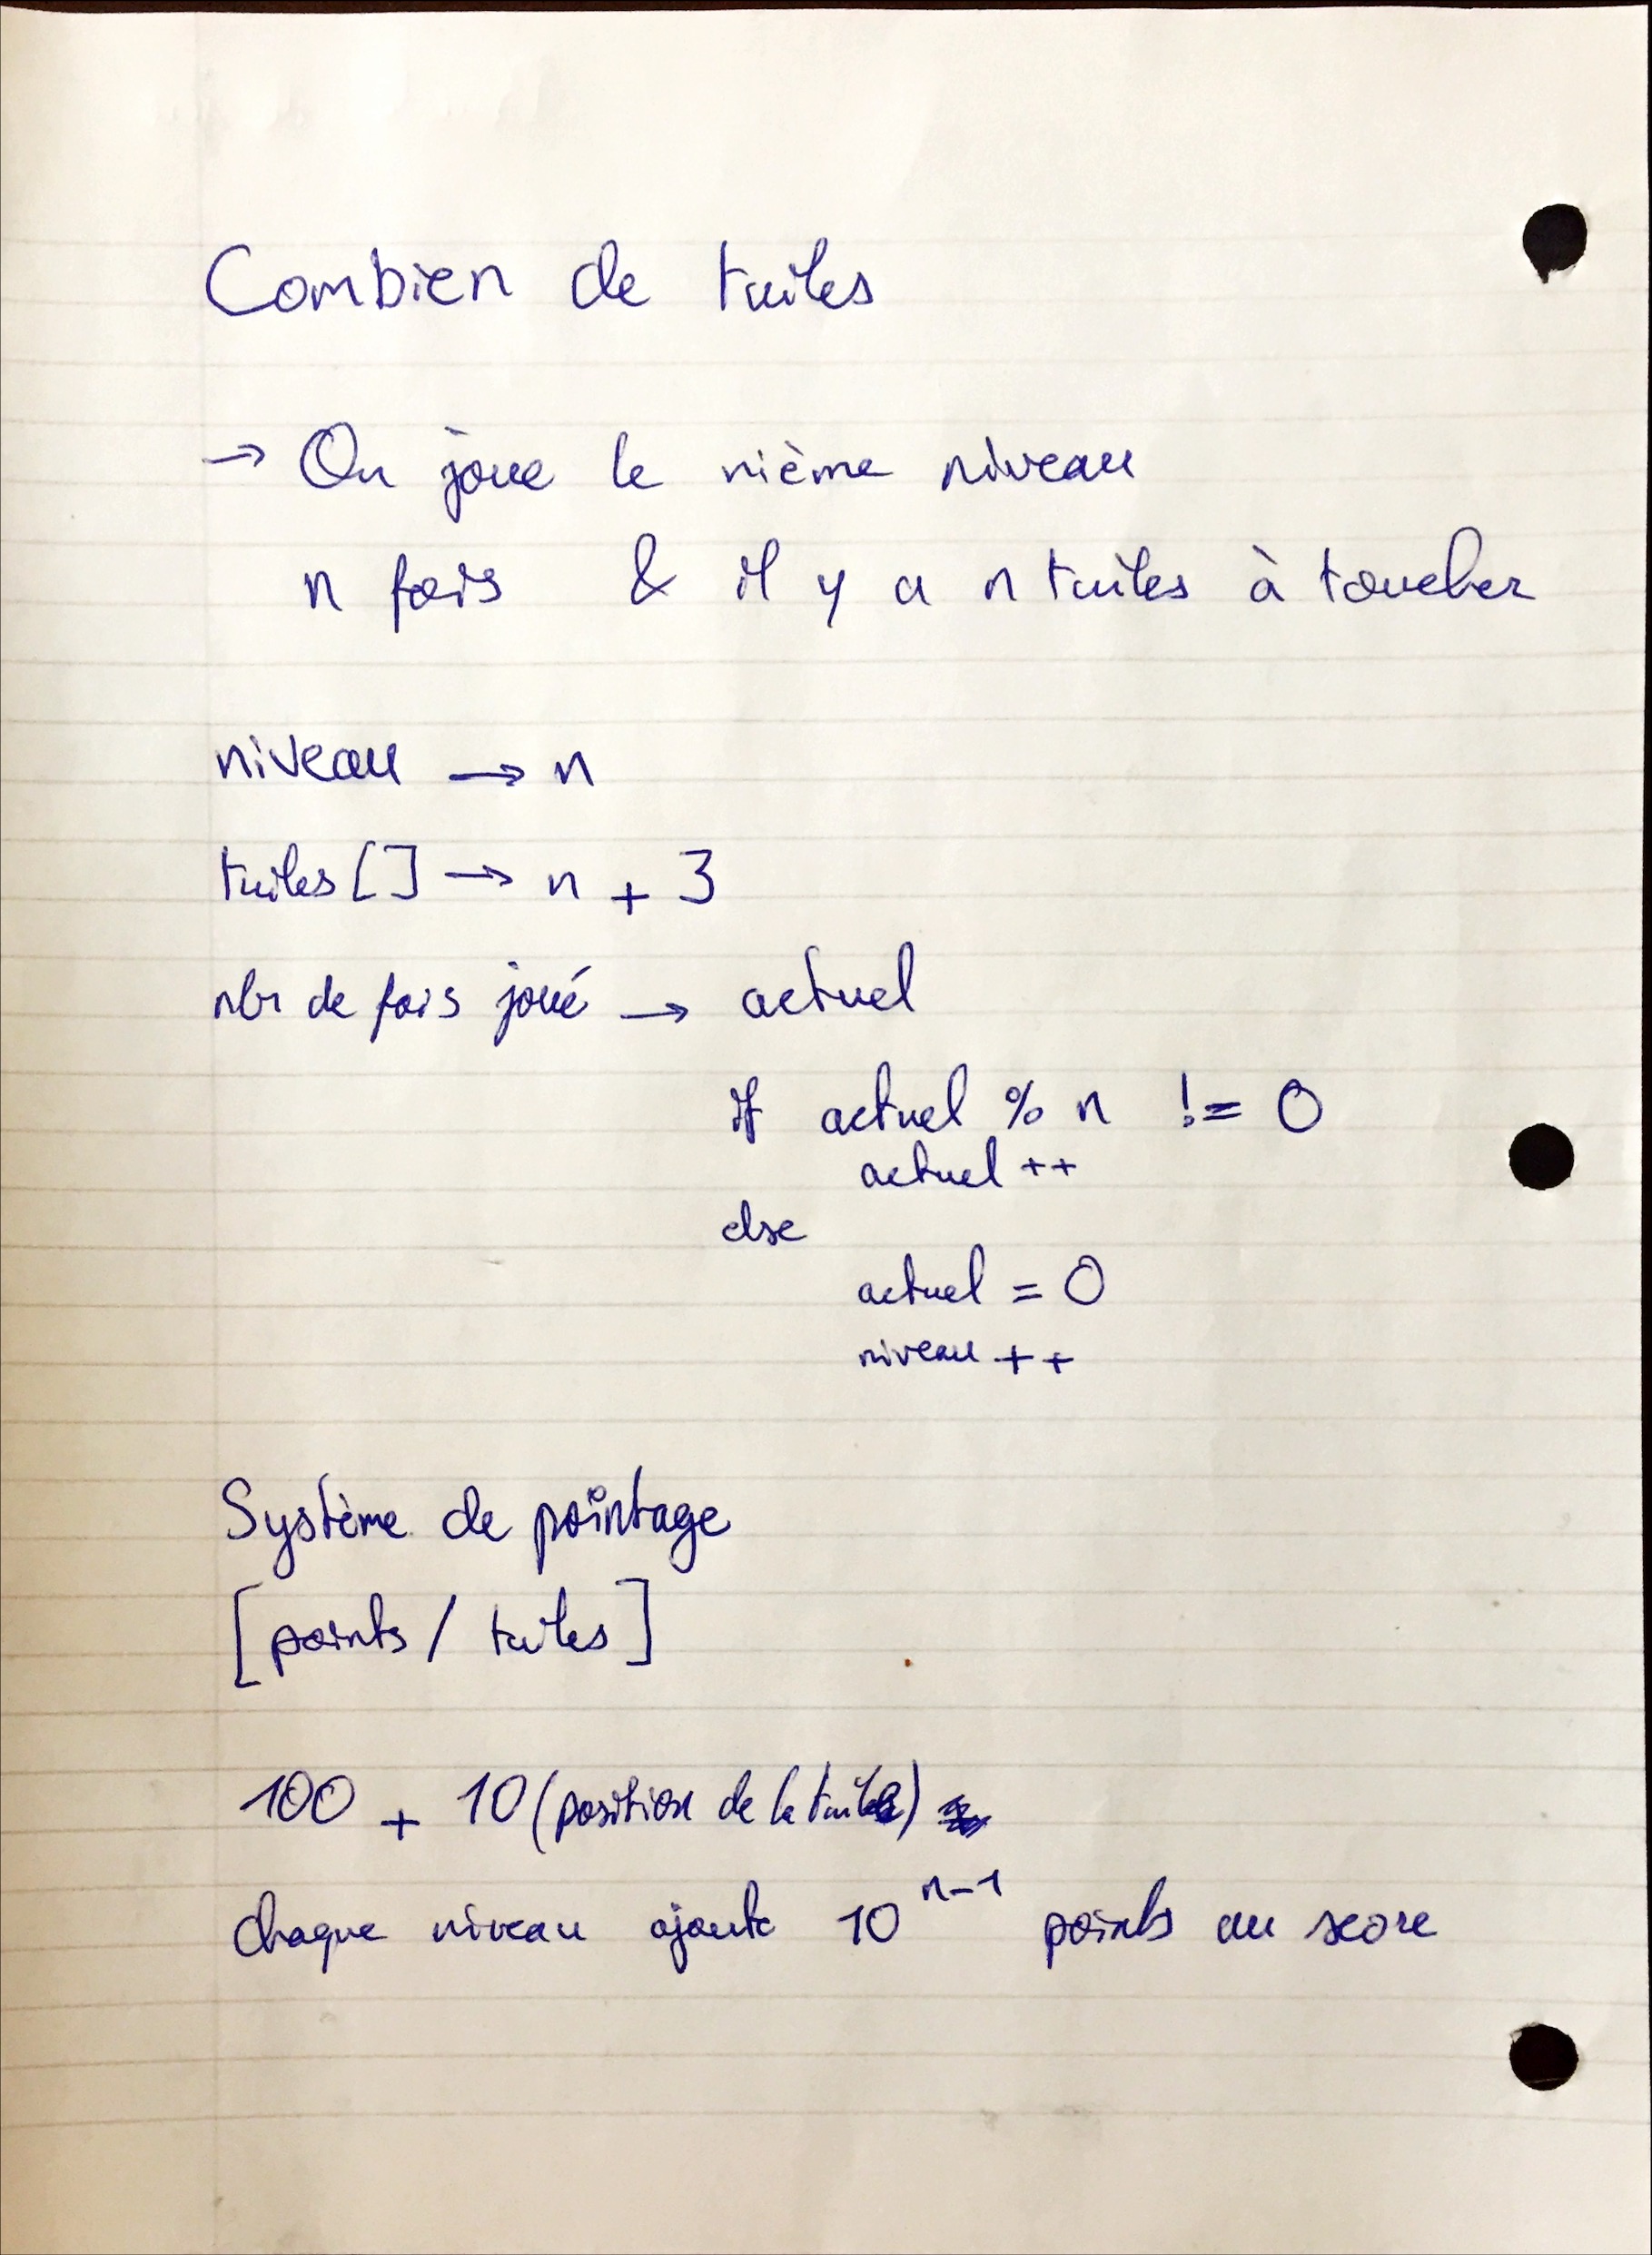 Combien de tuiles
→ On joue le nième niveau
n fois & il y a n tuiles à toucher
niveau → n
tuiles [] → n + 3
nbr de fois joué → actuel
if actuel % n != 0
actuel ++
else
actuel = 0
niveau ++
Système de pointage
[points / tuiles]
100 + 10 (position de la tuile)
chaque niveau ajoute 10^(n-1) points au score